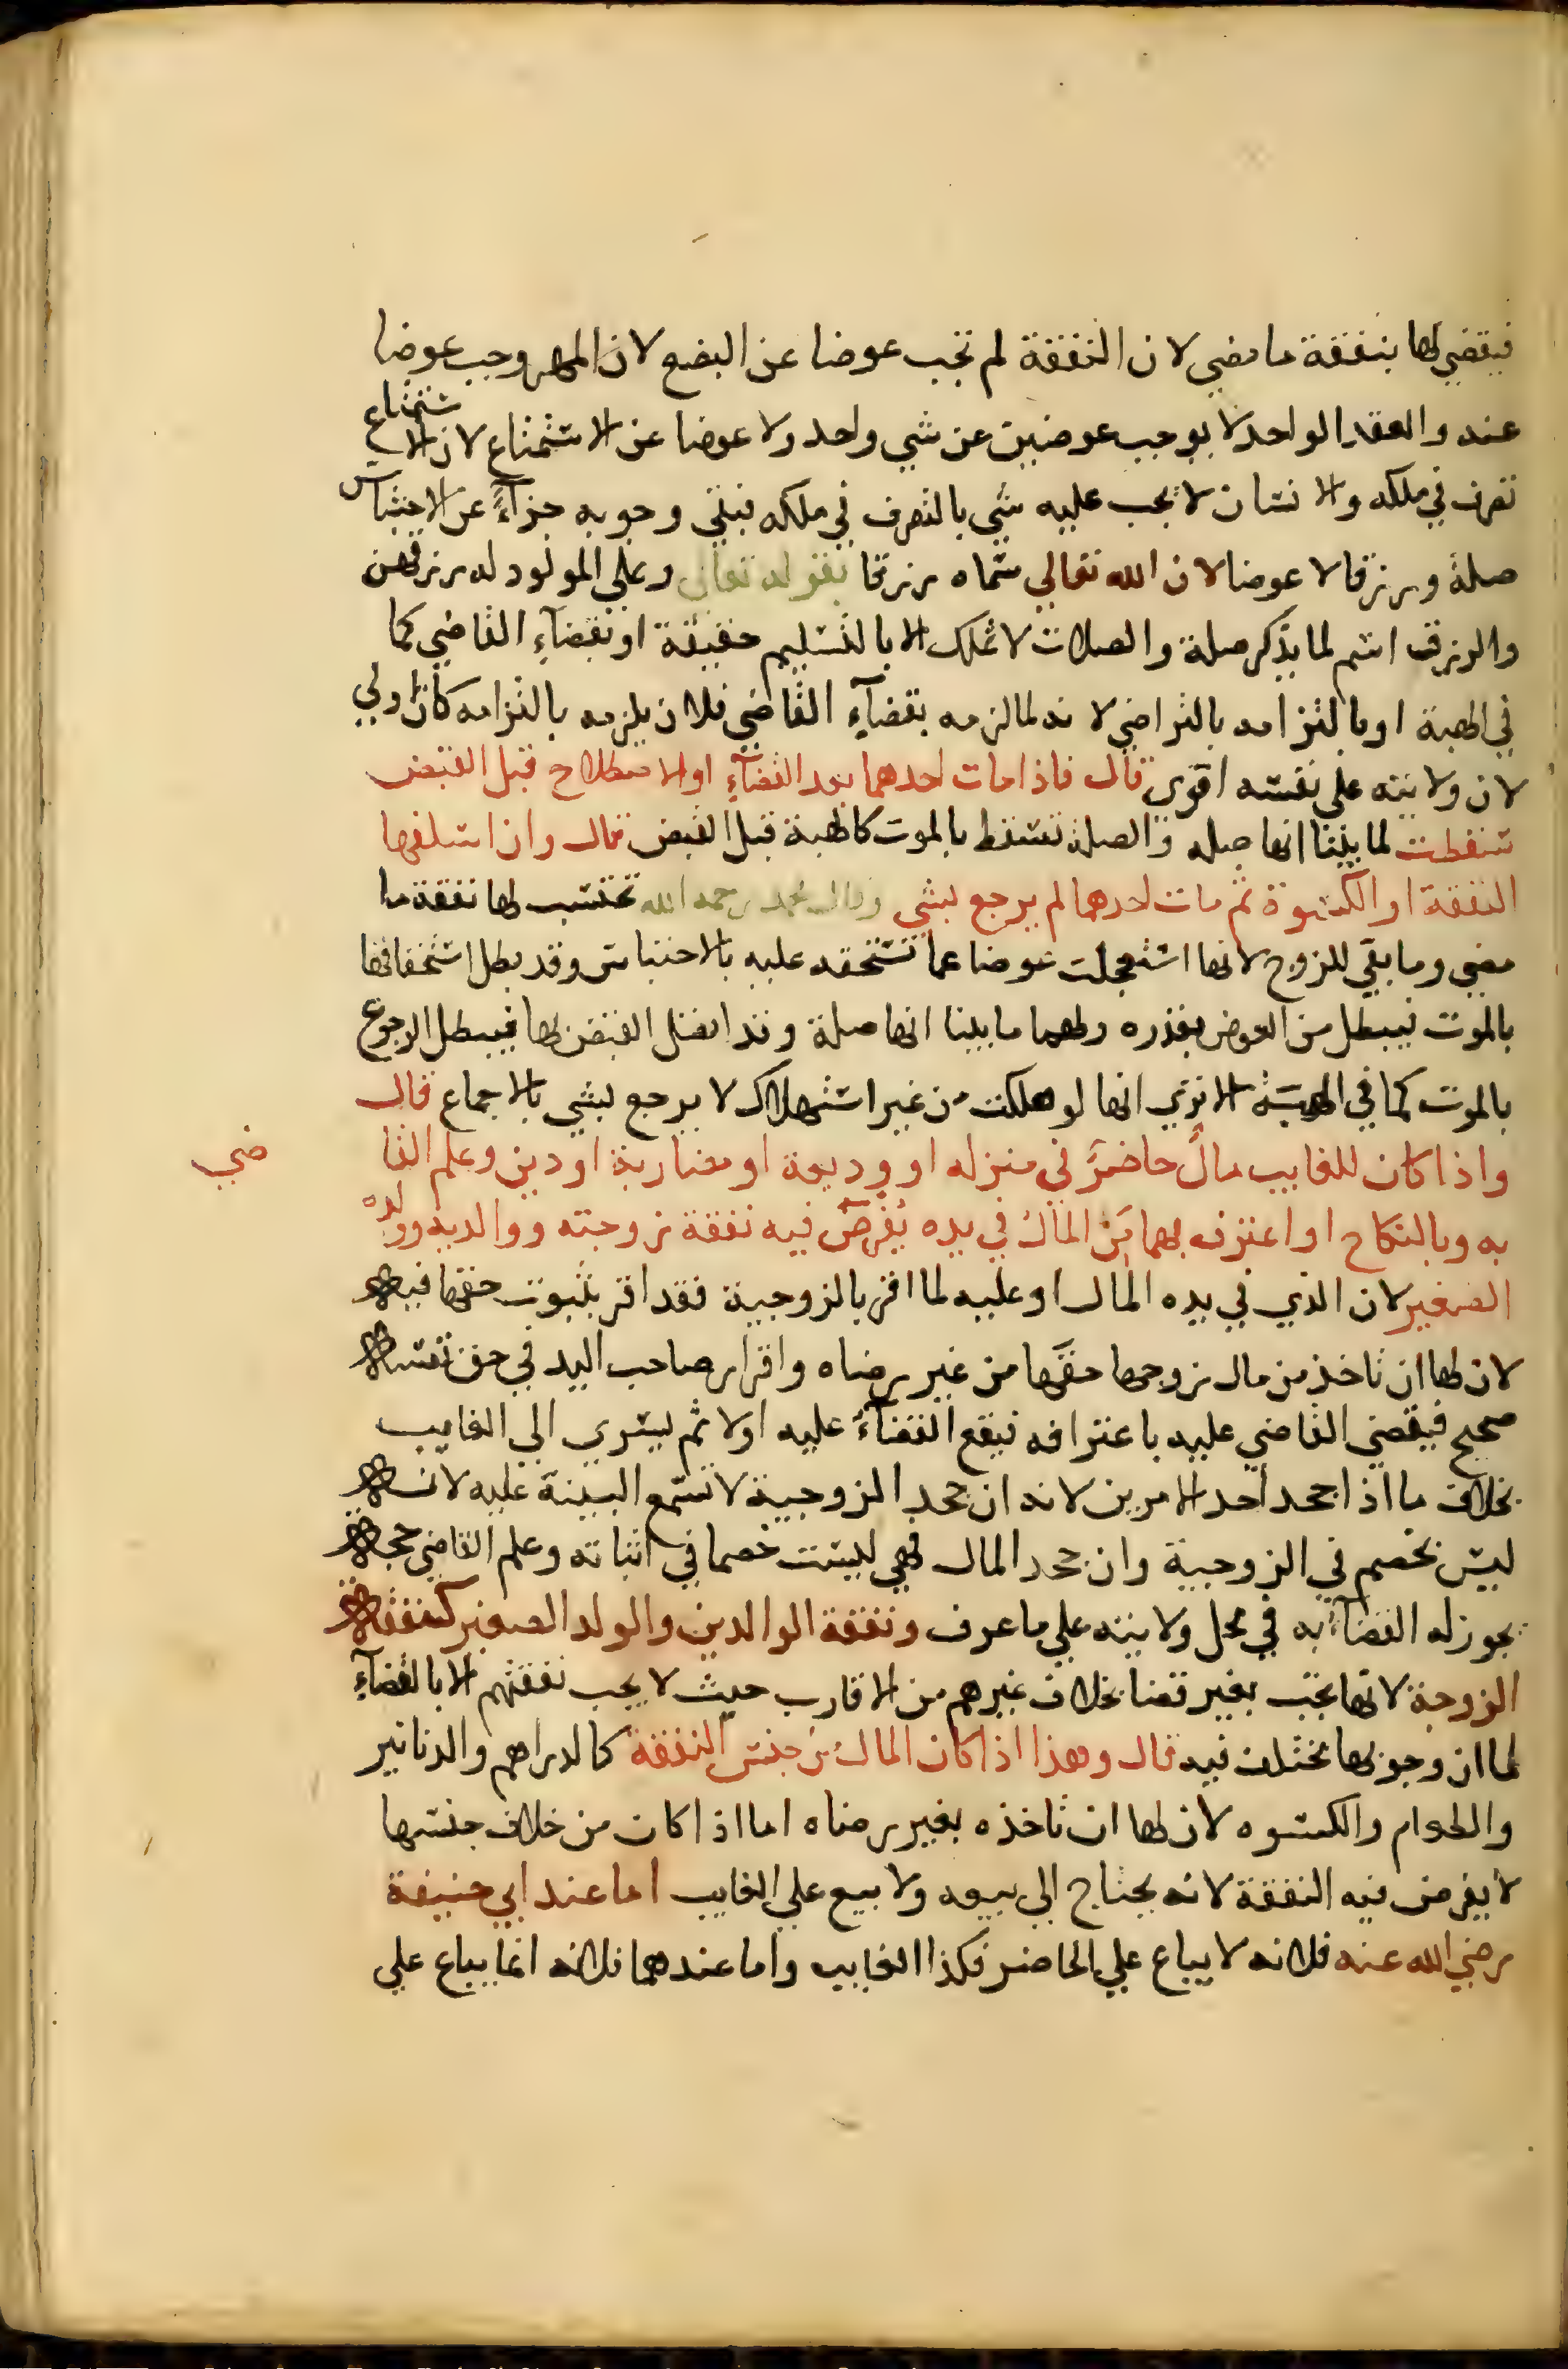 فيقضي لها بنفقة ما مضي لان النفقة لم تجب عوضا عن البضع لان المهر وجب عوضا
عنه والعقد الواحد لا يوجب عوضين عن شي واحد ولا عوضا عن الاستمتاع لان الاستمتاع
تصرف في ملكه والانسان لا يجب عليه شي بالتصرف في ملكه فبقي وجوبه جزآءً عن الاحتباس
صلة ورزقا لا عوضا لان الله تعالي سماه رزقا بقوله تعالي وعلي المولود له رزقهن
والرزق اسم لما يذكر صلة والصلات لا تملك الا بالتسليم حقيقة او بقضآءِ القاضي كما
في الهبة او بالتزامه بالتراضي لانه لما لزمه بقضآءِ القاضي فلان يلزمه بالتزامه كان اولي
لان ولايته علي نفسه اقوي قال فاذا مات احدهما بعد القضآءِ او الاصطلاح قبل القبض
سقطت لما بينا انها صله والصلة تسقط بالموت كالهبة قبل القبض قال وان اسلفها
النفقة او الكسوة ثم مات احدهما لم يرجع بشي وقال محمد رحمه الله تحتسب لها نفقة ما
مضي وما بقي للزوج لانها استعجلت عوضا عما تستحقه عليه بالاحتباس وقد بطل استحقاقها
بالموت فيبطل من العوض بقدره ولهما ما بينا انها صلة وقد اتصل القبض لها فيبطل الرجوع
بالموت كما في الهبة الا تري انها لو هلكت من غير استهلاك لا يرجع بشي بالاجماع قال
واذا كان للغايب مالٌ حاضرٌ في منزله او وديعة او مضاربة او دين وعلم القاضي
به وبالنكاح او اعترف بهما مَن المالُ في يده يُفرض فيه نفقة زوجته ووالديه وولده
الصغير لان الذي في يده المال او عليه لما اقر بالزوجية فقد اقر بثبوت حقها فيه
لان لها ان تاخذ من مال زوجها حقها من غير رضاه واقرار صاحب اليد في حق نفسه
صحيح فيقضي القاضي عليه باعترافه فيقع القضآءُ عليه اولا ثم يسري الي الغايب
بخلاف ما اذا جحد احد الامرين لانه ان جحد الزوجية لا تسمع البينة عليه لانه
ليس بخصم في الزوجية وان جحد المال فهي ليست خصما في اثباته وعلم القاضي حجة
يجوز له القضآء به في محل ولايته علي ما عرف ونفقة الوالدين والولد الصغير كنفقة
الزوجة لانها تجب بغير قضا بخلاف غيرهم من الاقارب حيث لا يجب نفقتهم الا بالقضآءِ
لما ان وجوبها مختلف فيه قال وهذا اذا كان المالُ من جنس النفقة كالدراهم والدنانير
والطعام والكسوه لان لها ان تاخذه بغير رضاه اما اذا كان من خلاف جنسها
لا يفرض فيه النفقة لانه يحتاج الي بيعه ولا بيع علي الغايب اما عند ابي حنيفة
رضي الله عنه فلانه لا يباع علي الحاضر فكذا الغايب واما عندهما فلانه انما يباع علي